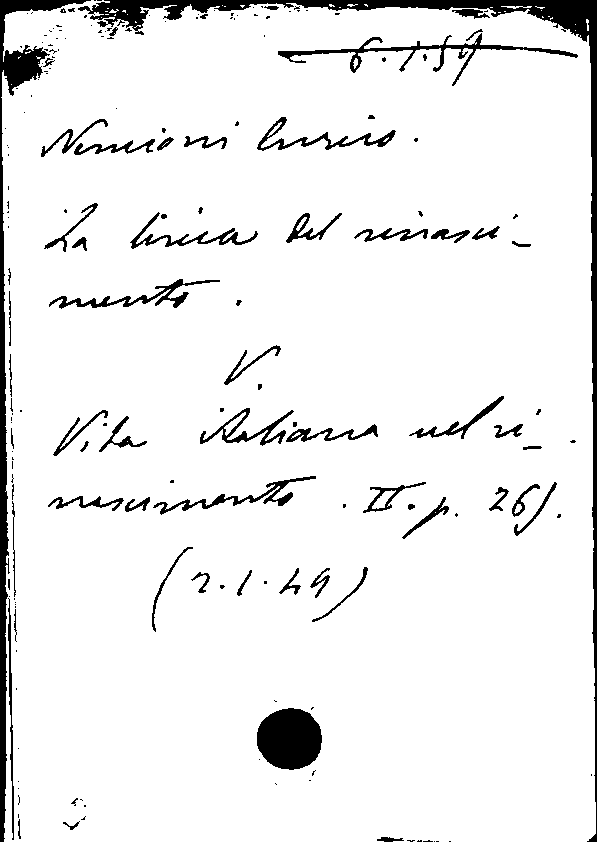 6.1.59
Nencioni Enrico.
La lirica del rinasci-
mento.
V.
Vita italiana nel ri-
nascimento. II. p. 265.
(2.1.49)